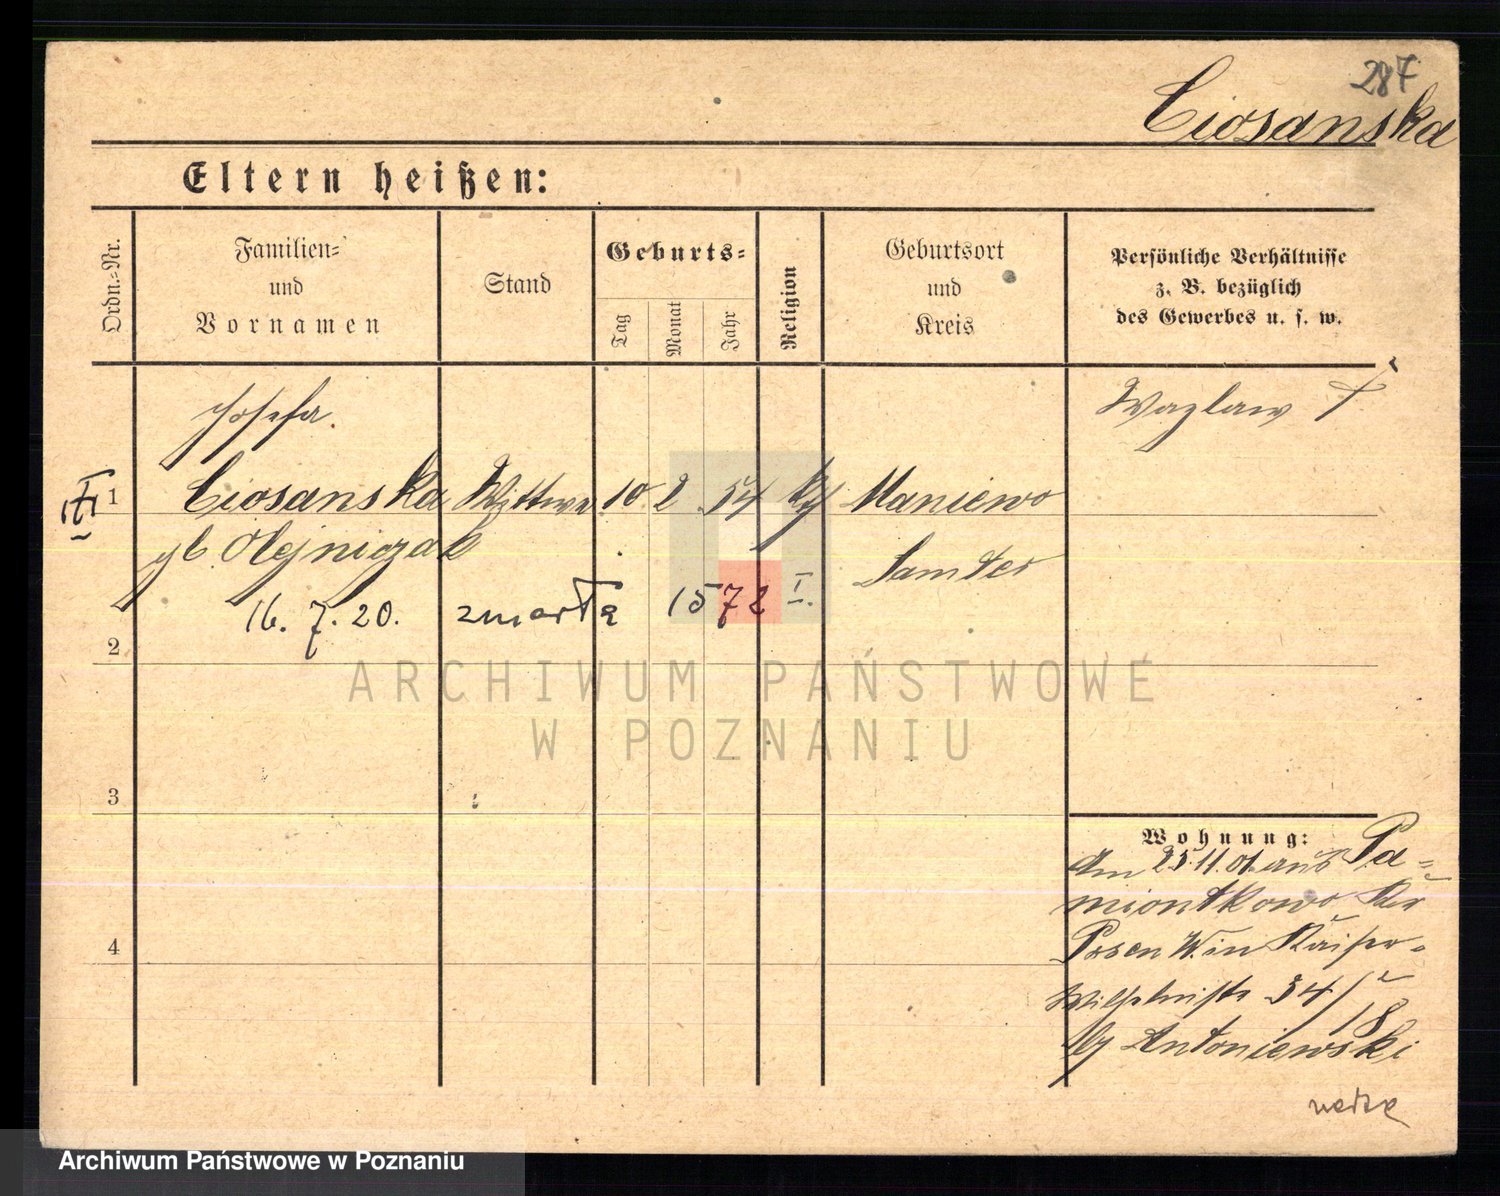 287
Ciosanska
Eltern heißen:
Ordn.-Nr.
Familien-
und
Vornamen
Stand
Geburts-
Tag
Monat
Jahr
Religion
Geburtsort
und
Kreis
Persönliche Verhältnisse
z. B. bezüglich
des Gewerbes u. s. w.
Josefa
Wazlaw †
1 Ciosanska Wittwe 10 2 54 Maniewo
gb. Olejniczak Samter
16. 7. 20. zmarła 1572 I.
2
3
4
Wohnung:
Am 25.11.01 aus Pa-
miontkowo Kr
Posen W. in Kaiser-
Wilhelmstr 34/I
18
by Antoniewski
ARCHIWUM PAŃSTWOWE
W POZNANIU
Archiwum Państwowe w Poznaniu